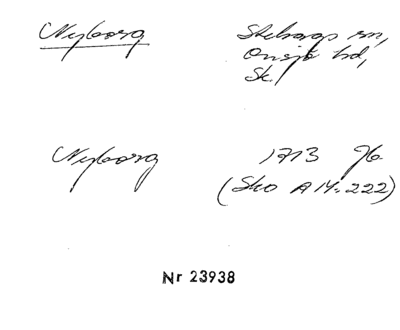 Nyborg Stehags sn,
Onsjö hd,
Sk.
Nyborg 1713 Jb
(Sko A 14:222)
Nr 23938